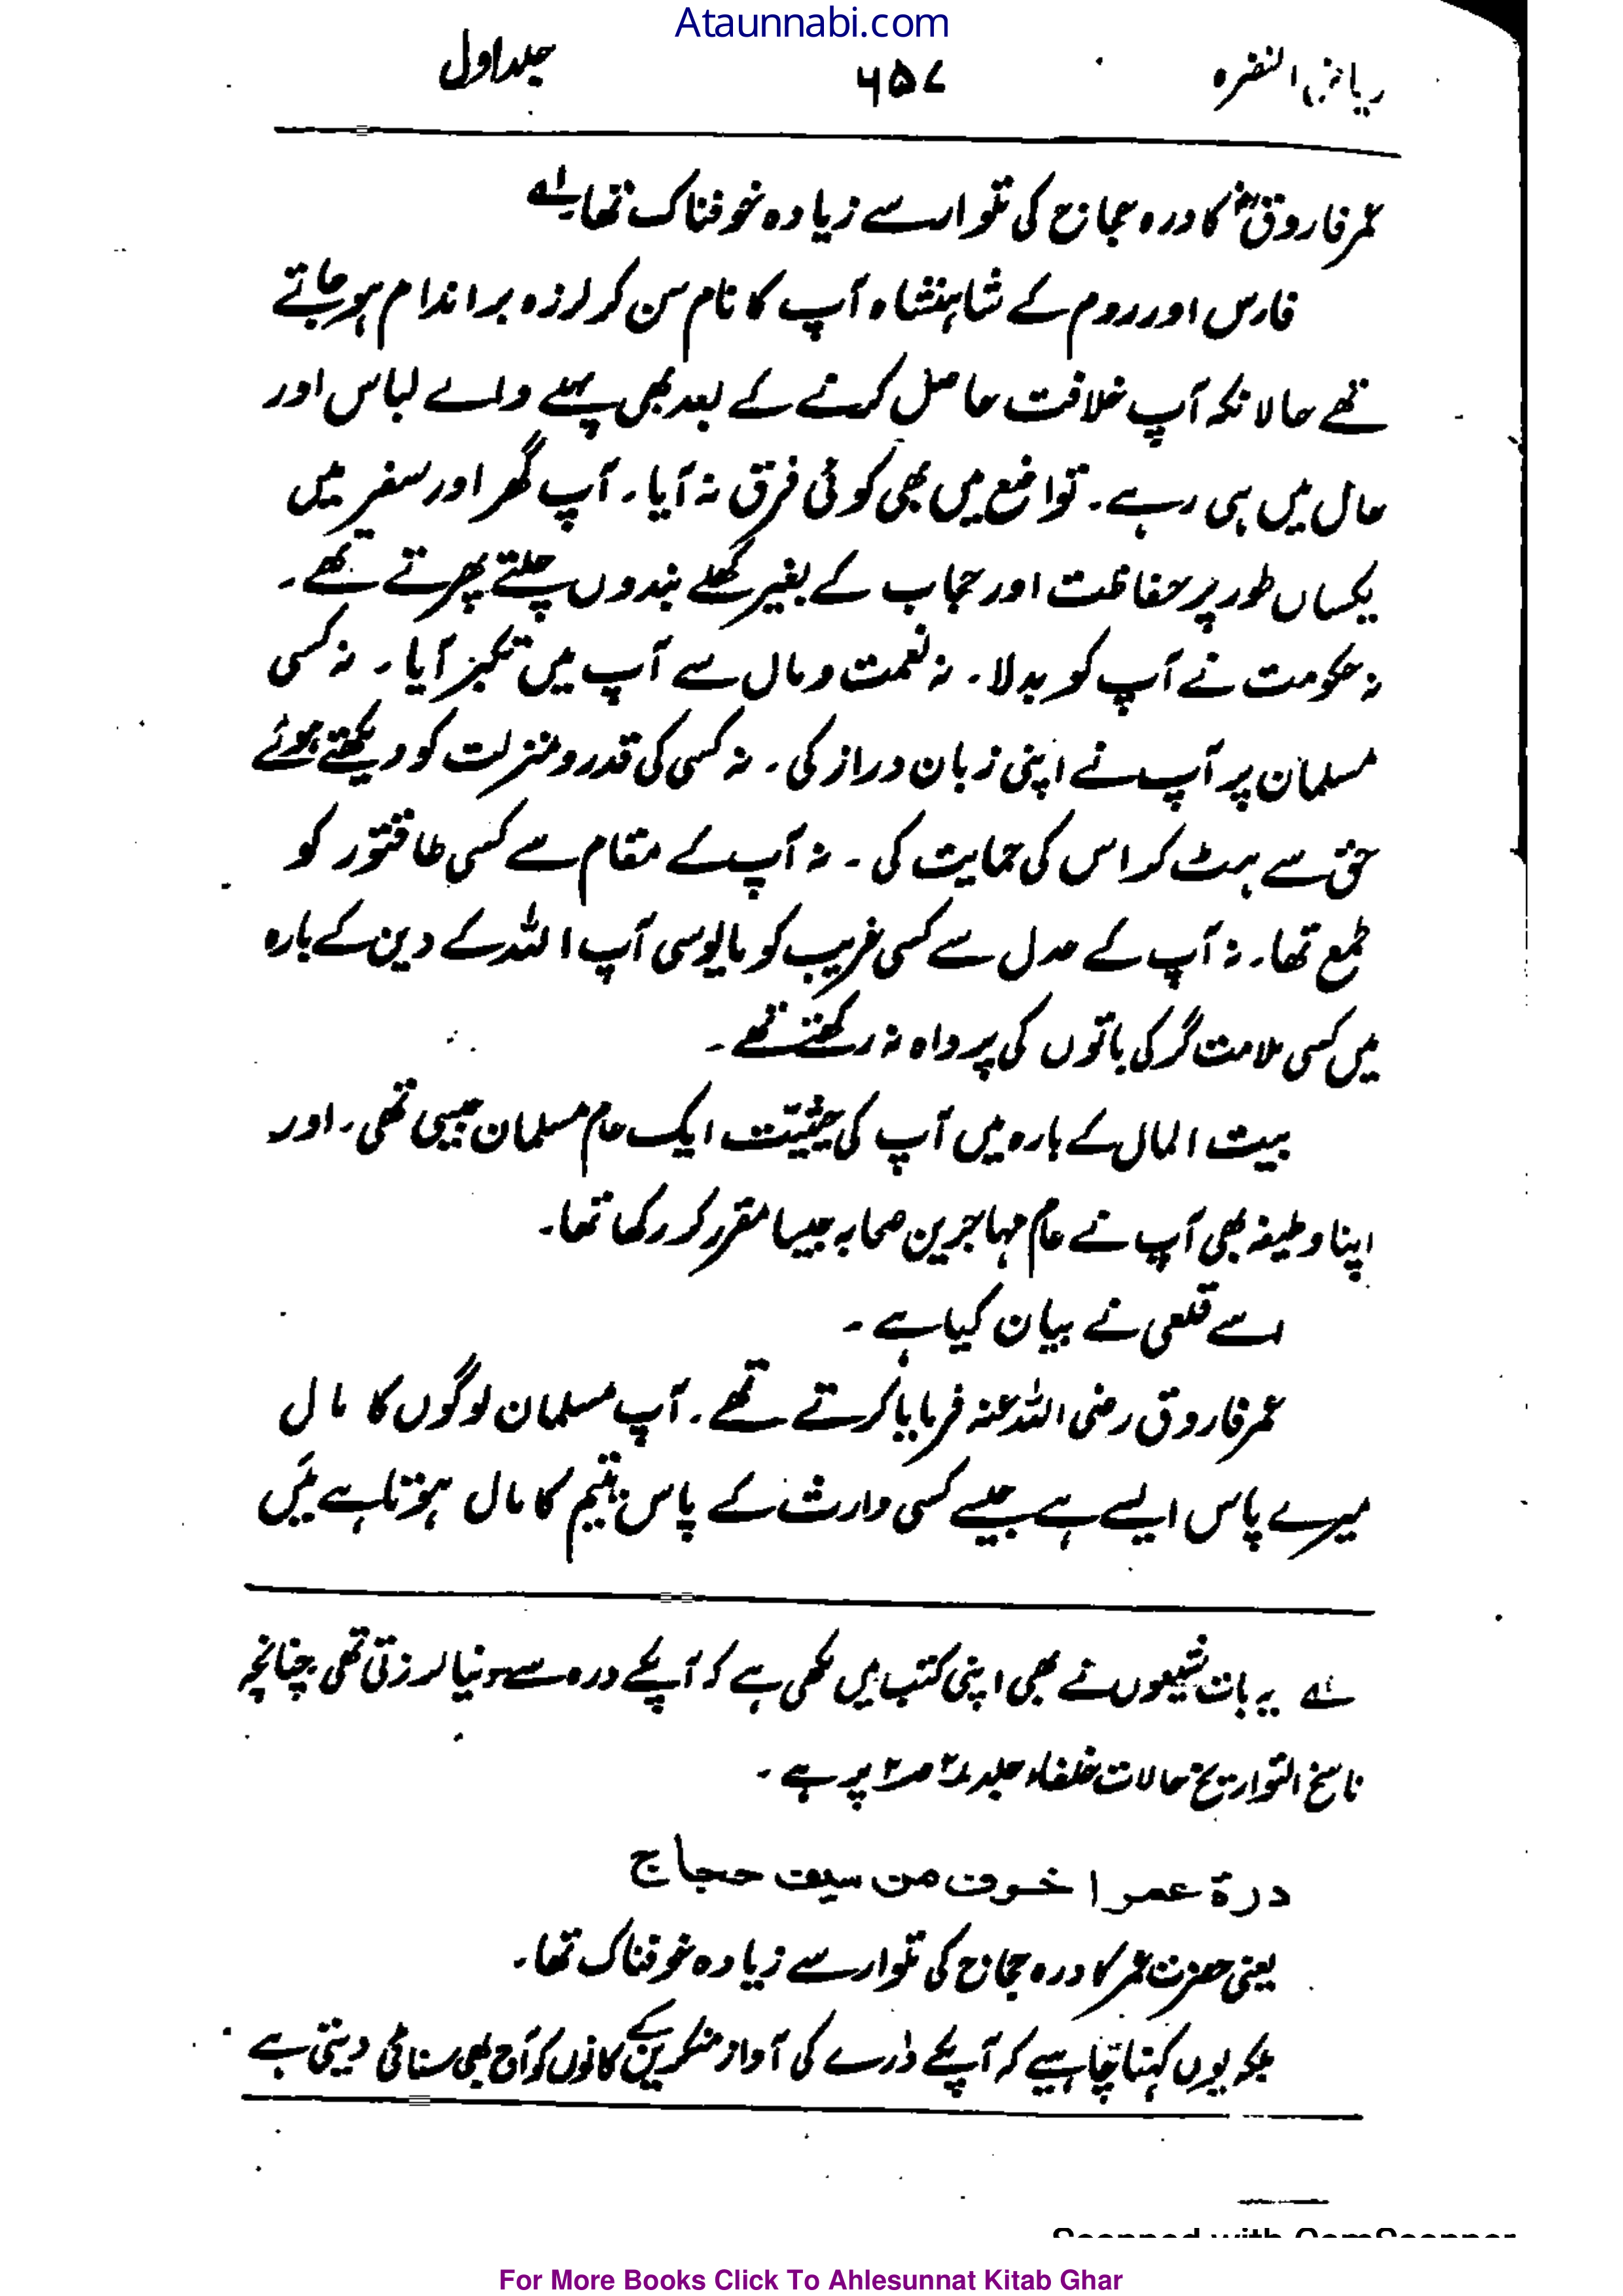 Ataunnabi.com
ریاض النضرہ ۶۵۷ جلد اول
عمر فاروقؓ کا درہ حجاج کی تلوار سے زیادہ خوفناک تھا۔ لہ
فارس اور روم کے شاہنشاہ آپ کا نام سن کر لرزہ براندام ہو جاتے
تھے حالانکہ آپ خلافت حاصل کرنے کے بعد بھی پہلے والے لباس اور
حال میں ہی رہے۔ تواضع میں بھی کوئی فرق نہ آیا۔ آپ گھر اور سفر میں
یکساں طور پر حفاظت اور حجاب کے بغیر کھلے بندوں چلتے پھرتے تھے۔
نہ حکومت نے آپ کو بدلا۔ نہ نعمت و مال سے آپ میں تکبر آیا۔ نہ کسی
مسلمان پر آپ نے اپنی زبان دراز کی۔ نہ کسی کی قدر و منزلت کو دیکھتے ہوئے
حق سے ہٹ کر اس کی حمایت کی۔ نہ آپ کے مقام سے کسی طاقتور کو
طمع تھا۔ نہ آپ کے عدل سے کسی غریب کو مایوسی آپ اللہ کے دین کے بارہ
میں کسی ملامت گر کی باتوں کی پرواہ نہ رکھتے تھے۔
بیت المال کے بارہ میں آپ کی حیثیت ایک عام مسلمان جیسی تھی۔ اور
اپنا وظیفہ بھی آپ نے عام مہاجرین صحابہ جیسا مقرر کر رکھا تھا۔
اسے قلعی نے بیان کیا ہے۔
عمر فاروق رضی اللہ عنہ فرمایا کرتے تھے۔ آپ مسلمان لوگوں کا مال
میرے پاس ایسے ہے جیسے کسی وارث کے پاس یتیم کا مال ہوتا ہے میں
لہ یہ بات شیعوں نے بھی اپنی کتب میں لکھی ہے کہ آپکے درہ سے دنیا لرزتی تھی چنانچہ
ناسخ التواریخ حالات خلفاء جلد پر ہے۔
درة عمر اخوف من سیف حجاج
یعنی حضرت عمر کا درہ حجاج کی تلوار سے زیادہ خوفناک تھا۔
بلکہ یوں کہنا چاہیے کہ آپکے دُرے کی آواز منکرین کے کانوں کو آج بھی سنائی دیتی ہے
For More Books Click To Ahlesunnat Kitab Ghar